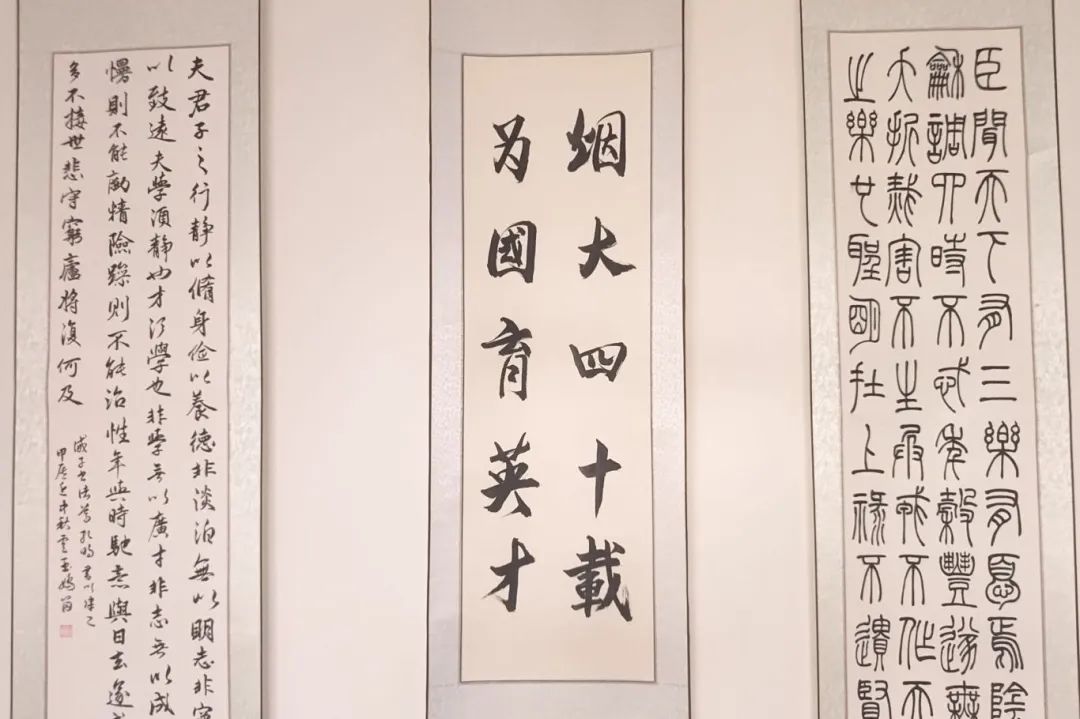 臣聞天下有三樂有憂焉陰
龢調四時不忒年穀豐遂無
夭折烖害不生兵戎不作天
之樂也聖朙在上祿不遺賢
烟大四十載
为國育英才
夫君子之行静以脩身俭以養德非淡泊無以明志非寧
以致遠夫學須静也才須學也非學无以廣才非志无以成
慢則不能勵精險躁則不能治性年與時馳志與日去遂
多不接世悲守窮廬将復何及
誡子书諸葛孔明書以律己
甲辰年中秋